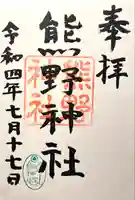 奉拝
熊野神社
令和四年七月十七日
熊野
神社